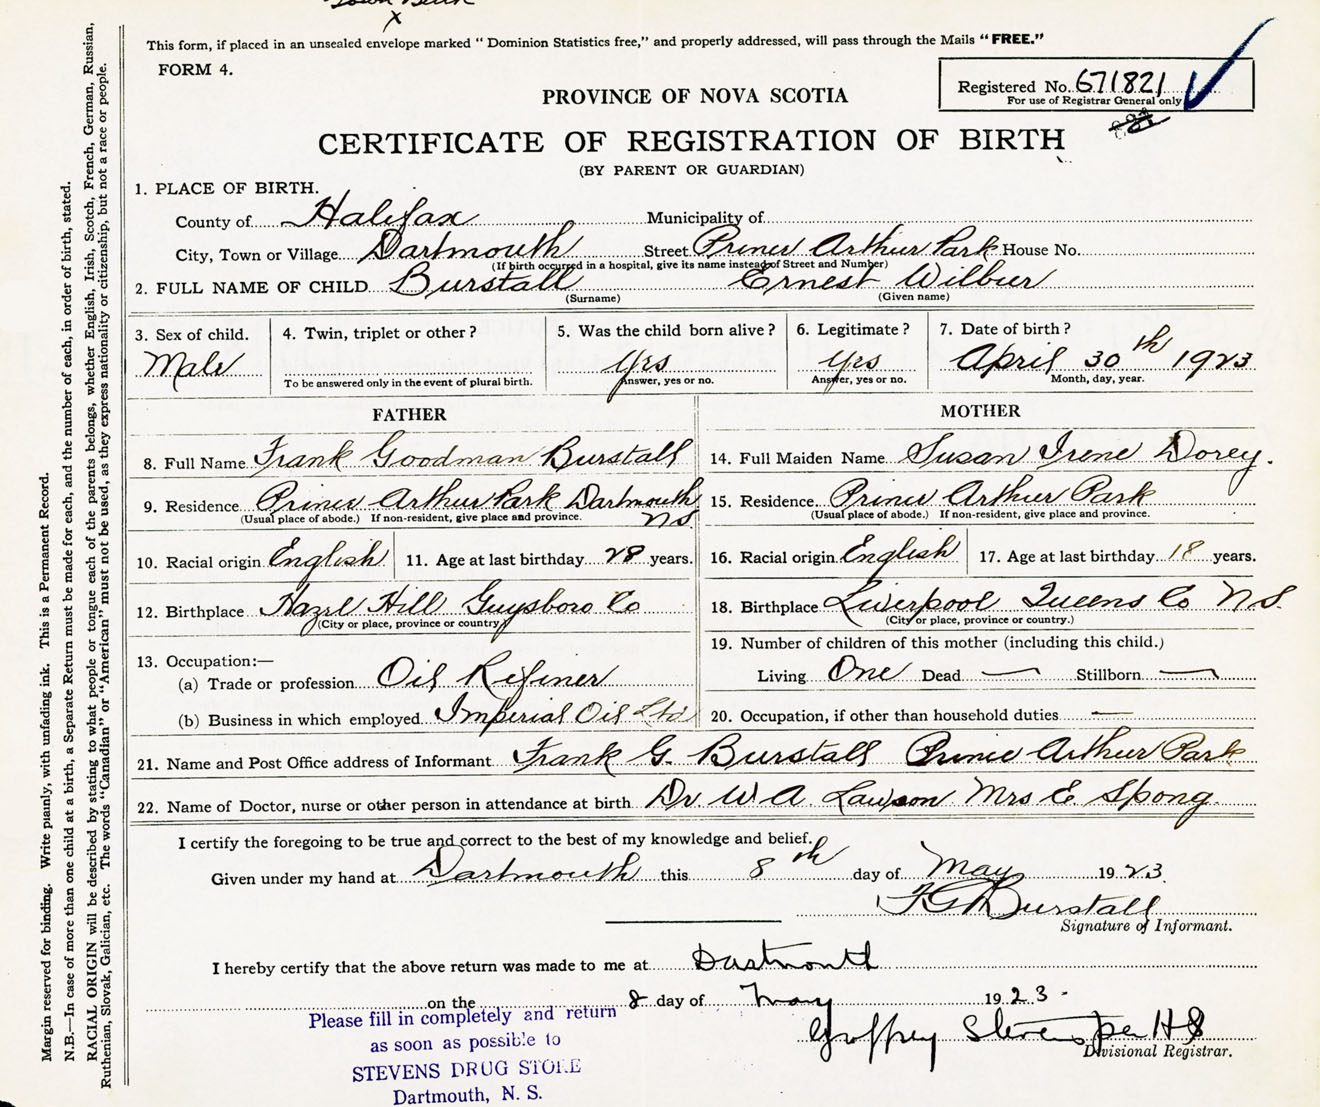 Town Birth
x
This form, if placed in an unsealed envelope marked "Dominion Statistics free," and properly addressed, will pass through the Mails "FREE."
FORM 4.
Registered No. 671821
For use of Registrar General only
PROVINCE OF NOVA SCOTIA
CERTIFICATE OF REGISTRATION OF BIRTH
(BY PARENT OR GUARDIAN)
1. PLACE OF BIRTH.
County of Halifax Municipality of
City, Town or Village Dartmouth Street Prince Arthur Park House No.
(If birth occurred in a hospital, give its name instead of Street and Number)
2. FULL NAME OF CHILD Burstall Ernest Wilbur
(Surname) (Given name)
3. Sex of child. 4. Twin, triplet or other? 5. Was the child born alive? 6. Legitimate? 7. Date of birth?
Male Yes Yes April 30th 1923
To be answered only in the event of plural birth. Answer, yes or no. Answer, yes or no. Month, day, year.
FATHER MOTHER
8. Full Name Frank Goodman Burstall 14. Full Maiden Name Susan Irene Dorey.
9. Residence Prince Arthur Park Dartmouth NS 15. Residence Prince Arthur Park
(Usual place of abode.) If non-resident, give place and province. (Usual place of abode.) If non-resident, give place and province.
10. Racial origin English 11. Age at last birthday 28 years. 16. Racial origin English 17. Age at last birthday 18 years.
12. Birthplace Hazel Hill Guysboro Co 18. Birthplace Liverpool Queens Co N.S.
(City or place, province or country.) (City or place, province or country.)
13. Occupation:— 19. Number of children of this mother (including this child.)
(a) Trade or profession Oil Refiner Living One Dead — Stillborn —
(b) Business in which employed Imperial Oil Ltd 20. Occupation, if other than household duties —
21. Name and Post Office address of Informant Frank G. Burstall Prince Arthur Park
22. Name of Doctor, nurse or other person in attendance at birth Dr W A Lawson Mrs E Spong
I certify the foregoing to be true and correct to the best of my knowledge and belief.
Given under my hand at Dartmouth this 8th day of May 1923
F G Burstall
Signature of Informant.
I hereby certify that the above return was made to me at Dartmouth
on the 8 day of May 1923.
Geoffrey Stevens per HS
Divisional Registrar.
Please fill in completely and return
as soon as possible to
STEVENS DRUG STORE
Dartmouth, N. S.
Margin reserved for binding. Write plainly, with unfading ink. This is a Permanent Record.
N.B.—In case of more than one child at a birth, a Separate Return must be made for each, and the number of each, in order of birth, stated.
RACIAL ORIGIN will be described by stating to what people or tongue each of the parents belongs, whether English, Irish, Scotch, French, German, Russian,
Ruthenian, Slovak, Galician, etc. The words "Canadian" or "American" must not be used, as they express nationality or citizenship, but not a race or people.